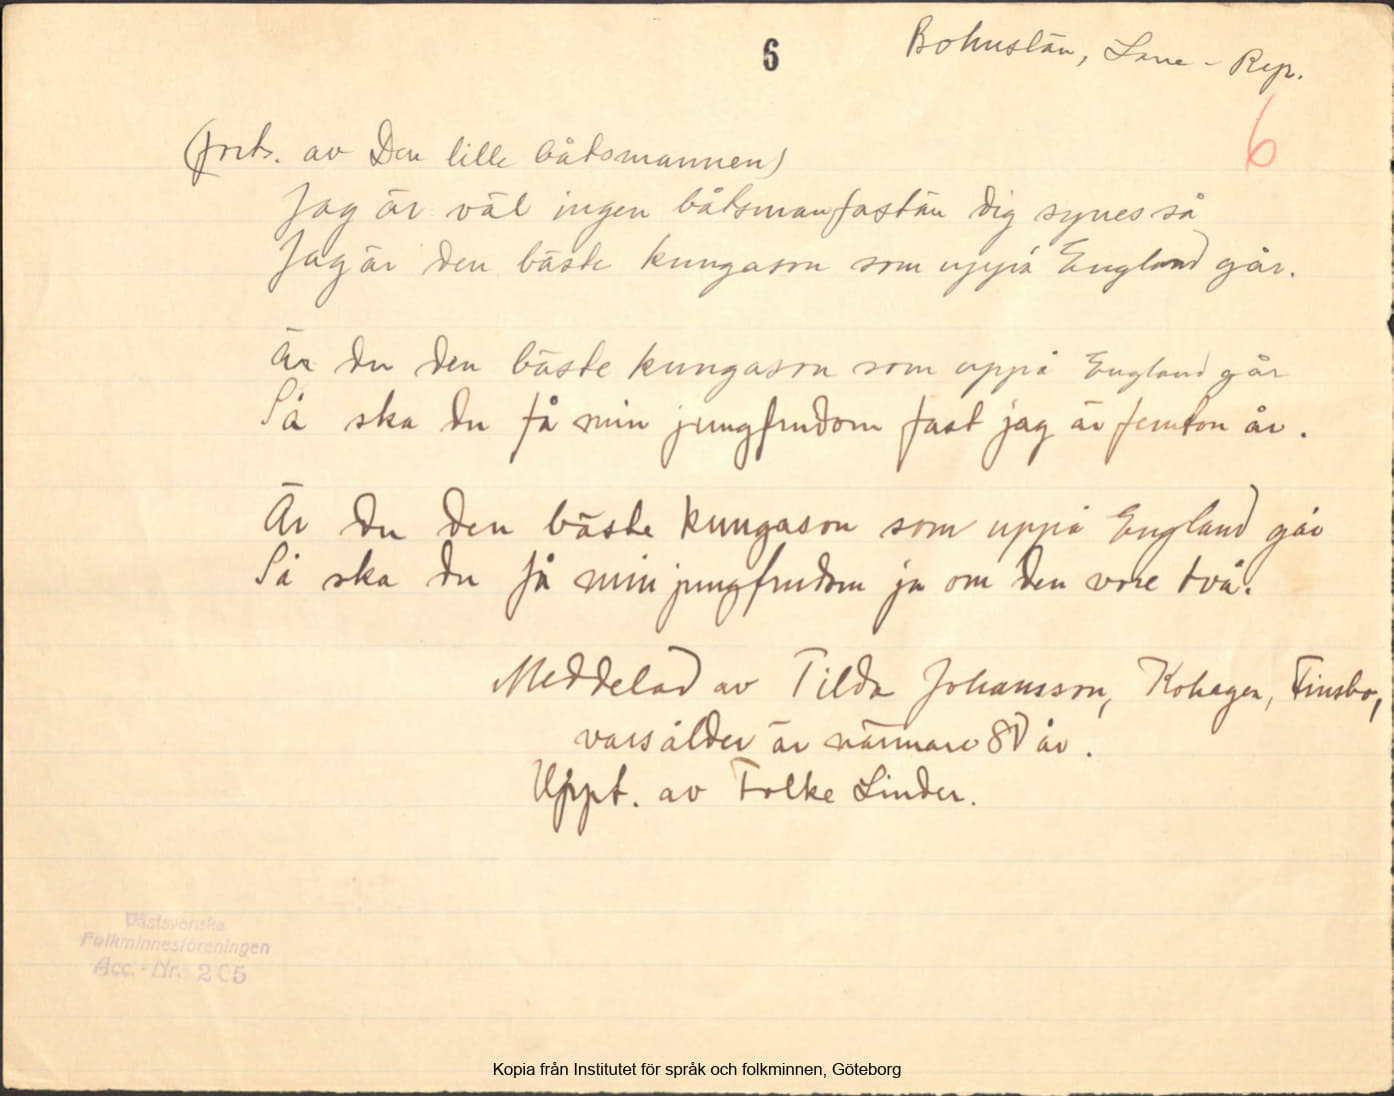 6
Bohuslän, Lane - Ryr.
6
(forts. av Den lille båtsmannen)
Jag är väl ingen båtsman fastän dig synes så
Jag är den bäste kungason som uppå England går.
Är du den bäste kungason som uppå England går
Så ska du få min jungfrudom fast jag är femton år.
Är du den bäste kungason som uppå England går
Så ska du få min jungfrudom ja om den vore två.
Meddelad av Tilda Johansson, Kohagen, Finsbo,
vars ålder är närmare 80 år.
Uppt. av Folke Linder.
Västsvenska
Folkminnesföreningen
Acc.-Nr. 205
Kopia från Institutet för språk och folkminnen, Göteborg